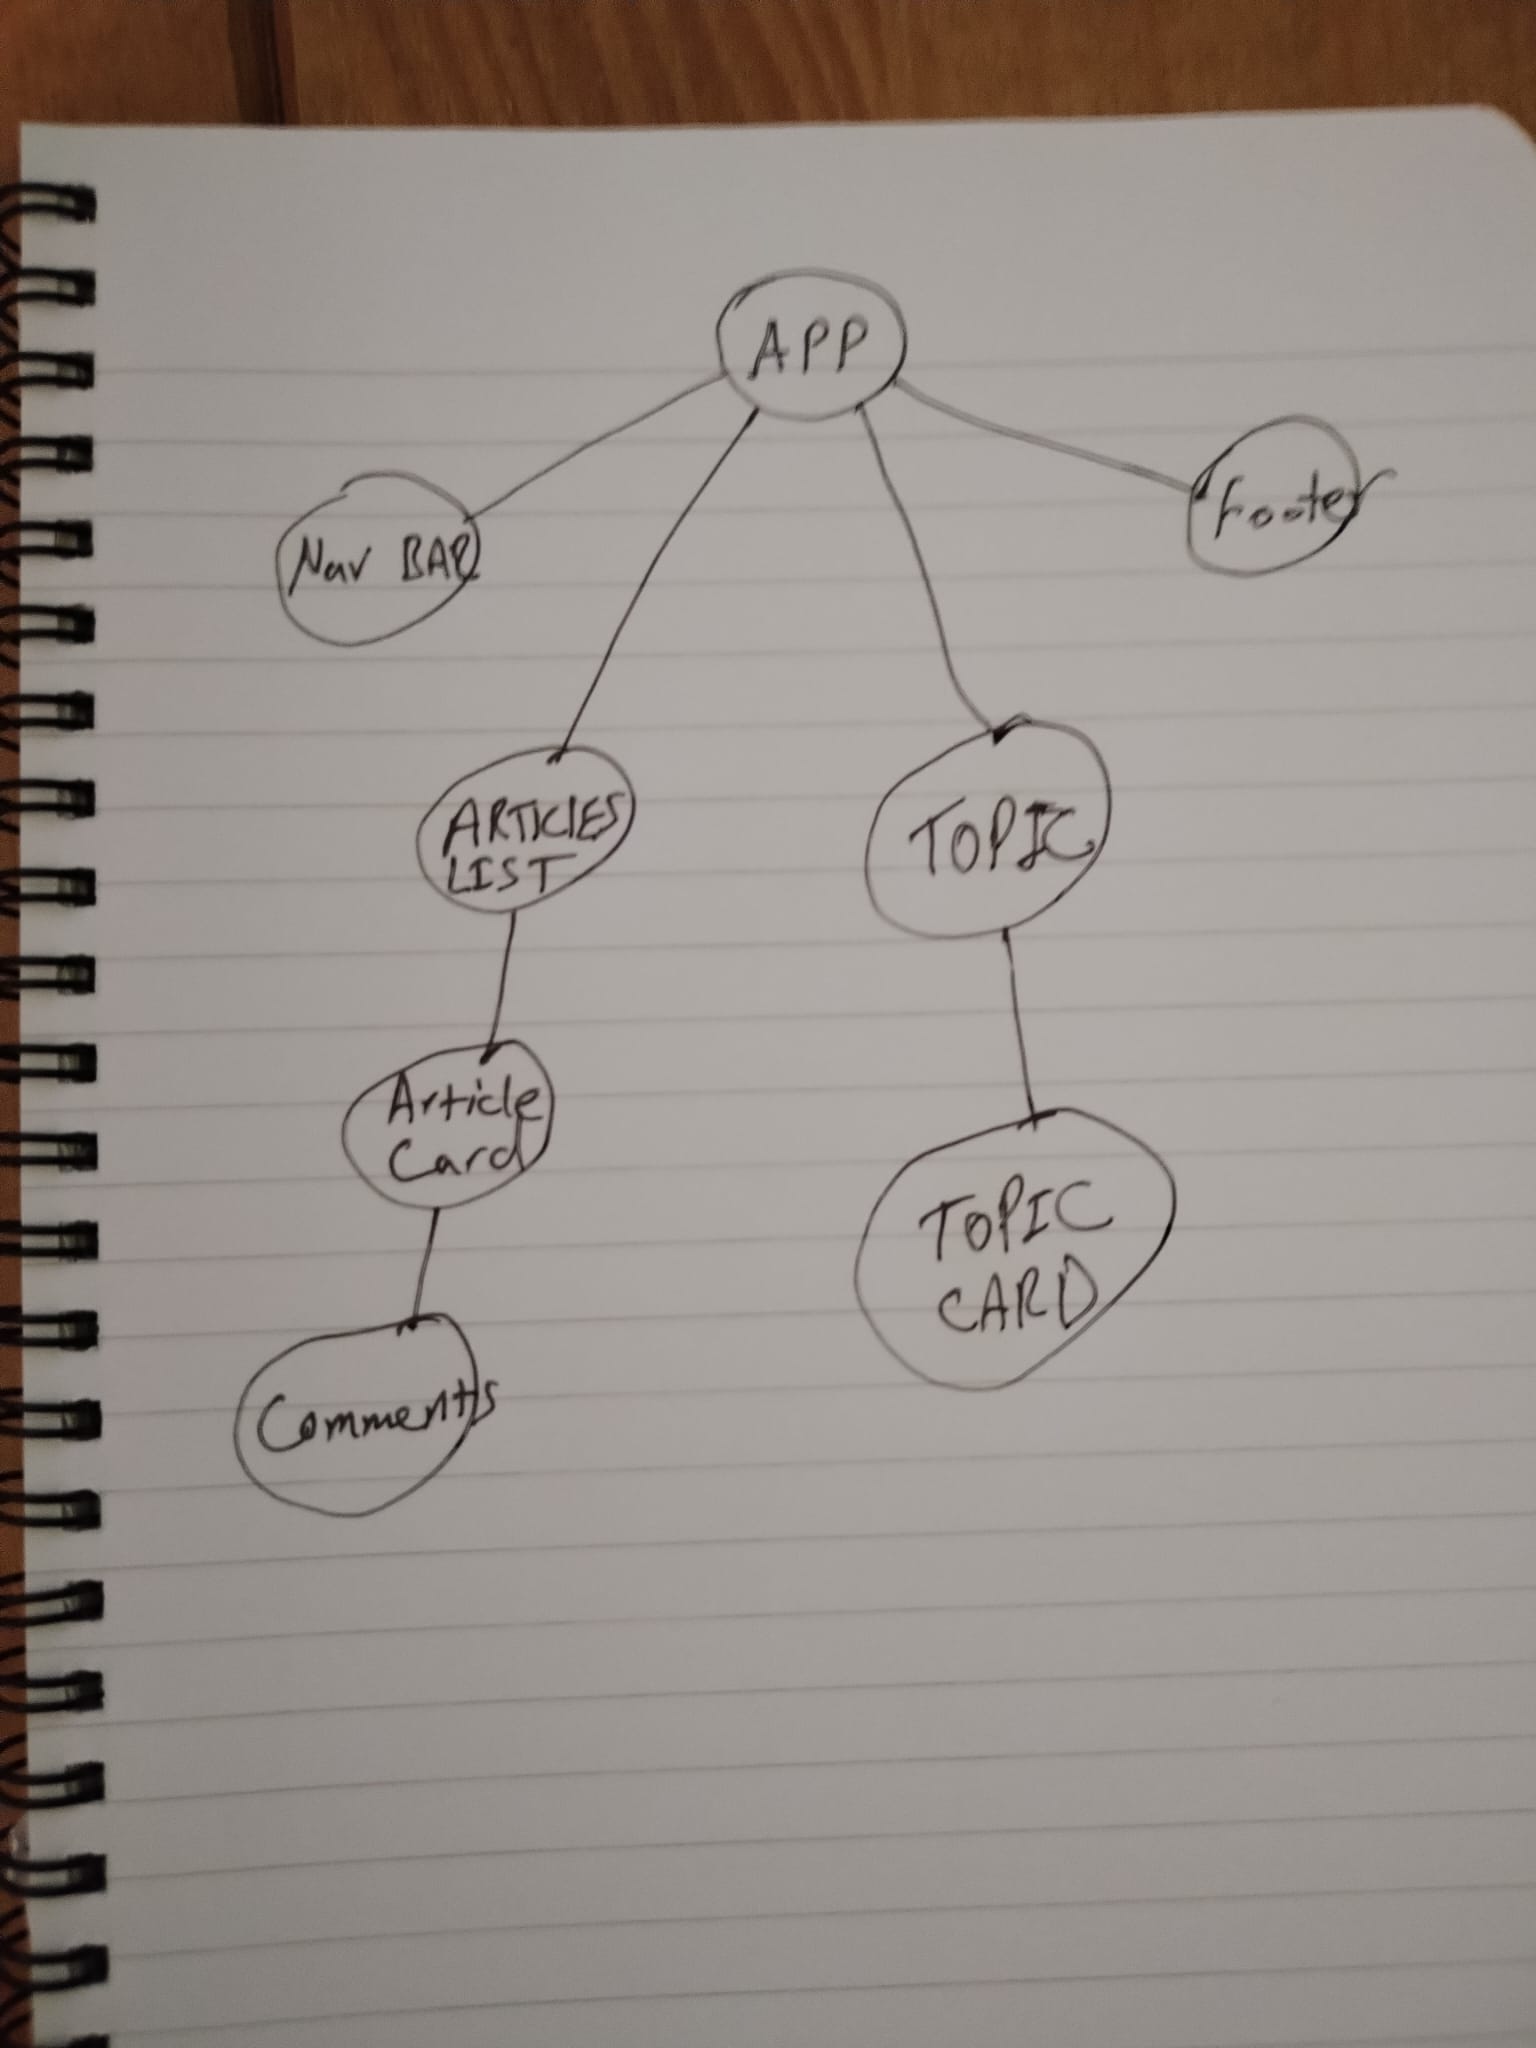 APP
Nav BAR
Footer
ARTICLES
LIST
TOPIC
Article
Card
TOPIC
CARD
Comments